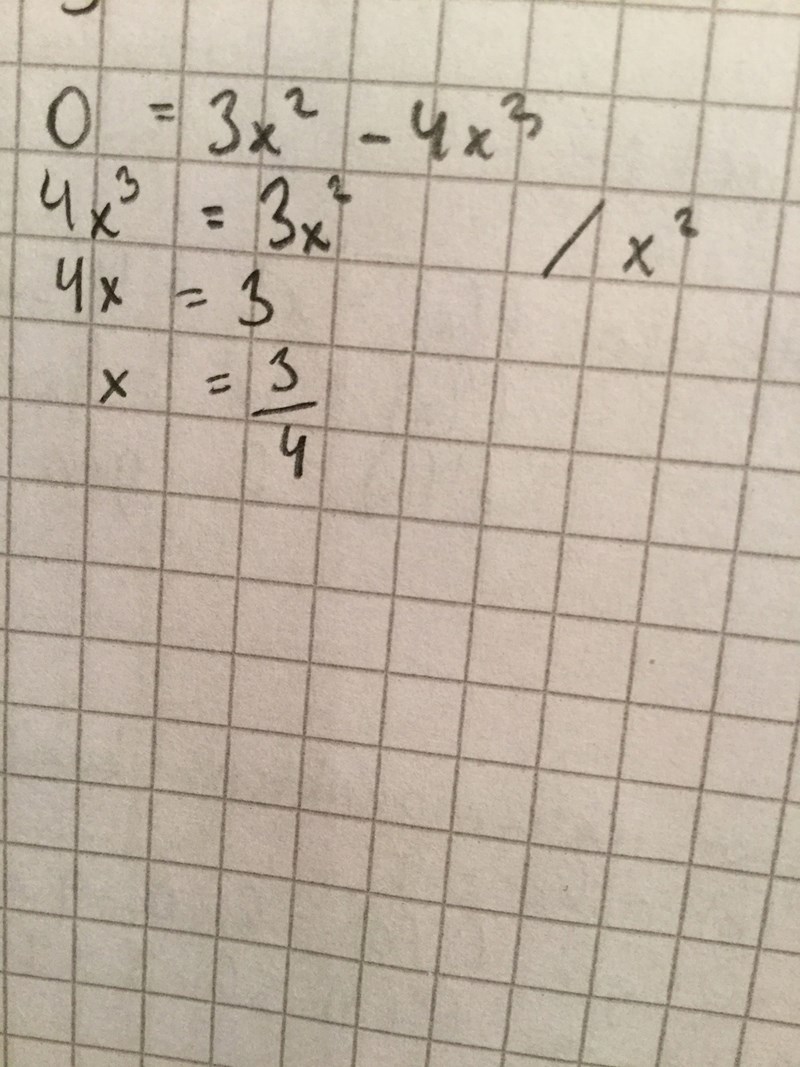 0 = 3x² - 4x³
4x³ = 3x² / x²
4x = 3
x = 3/4